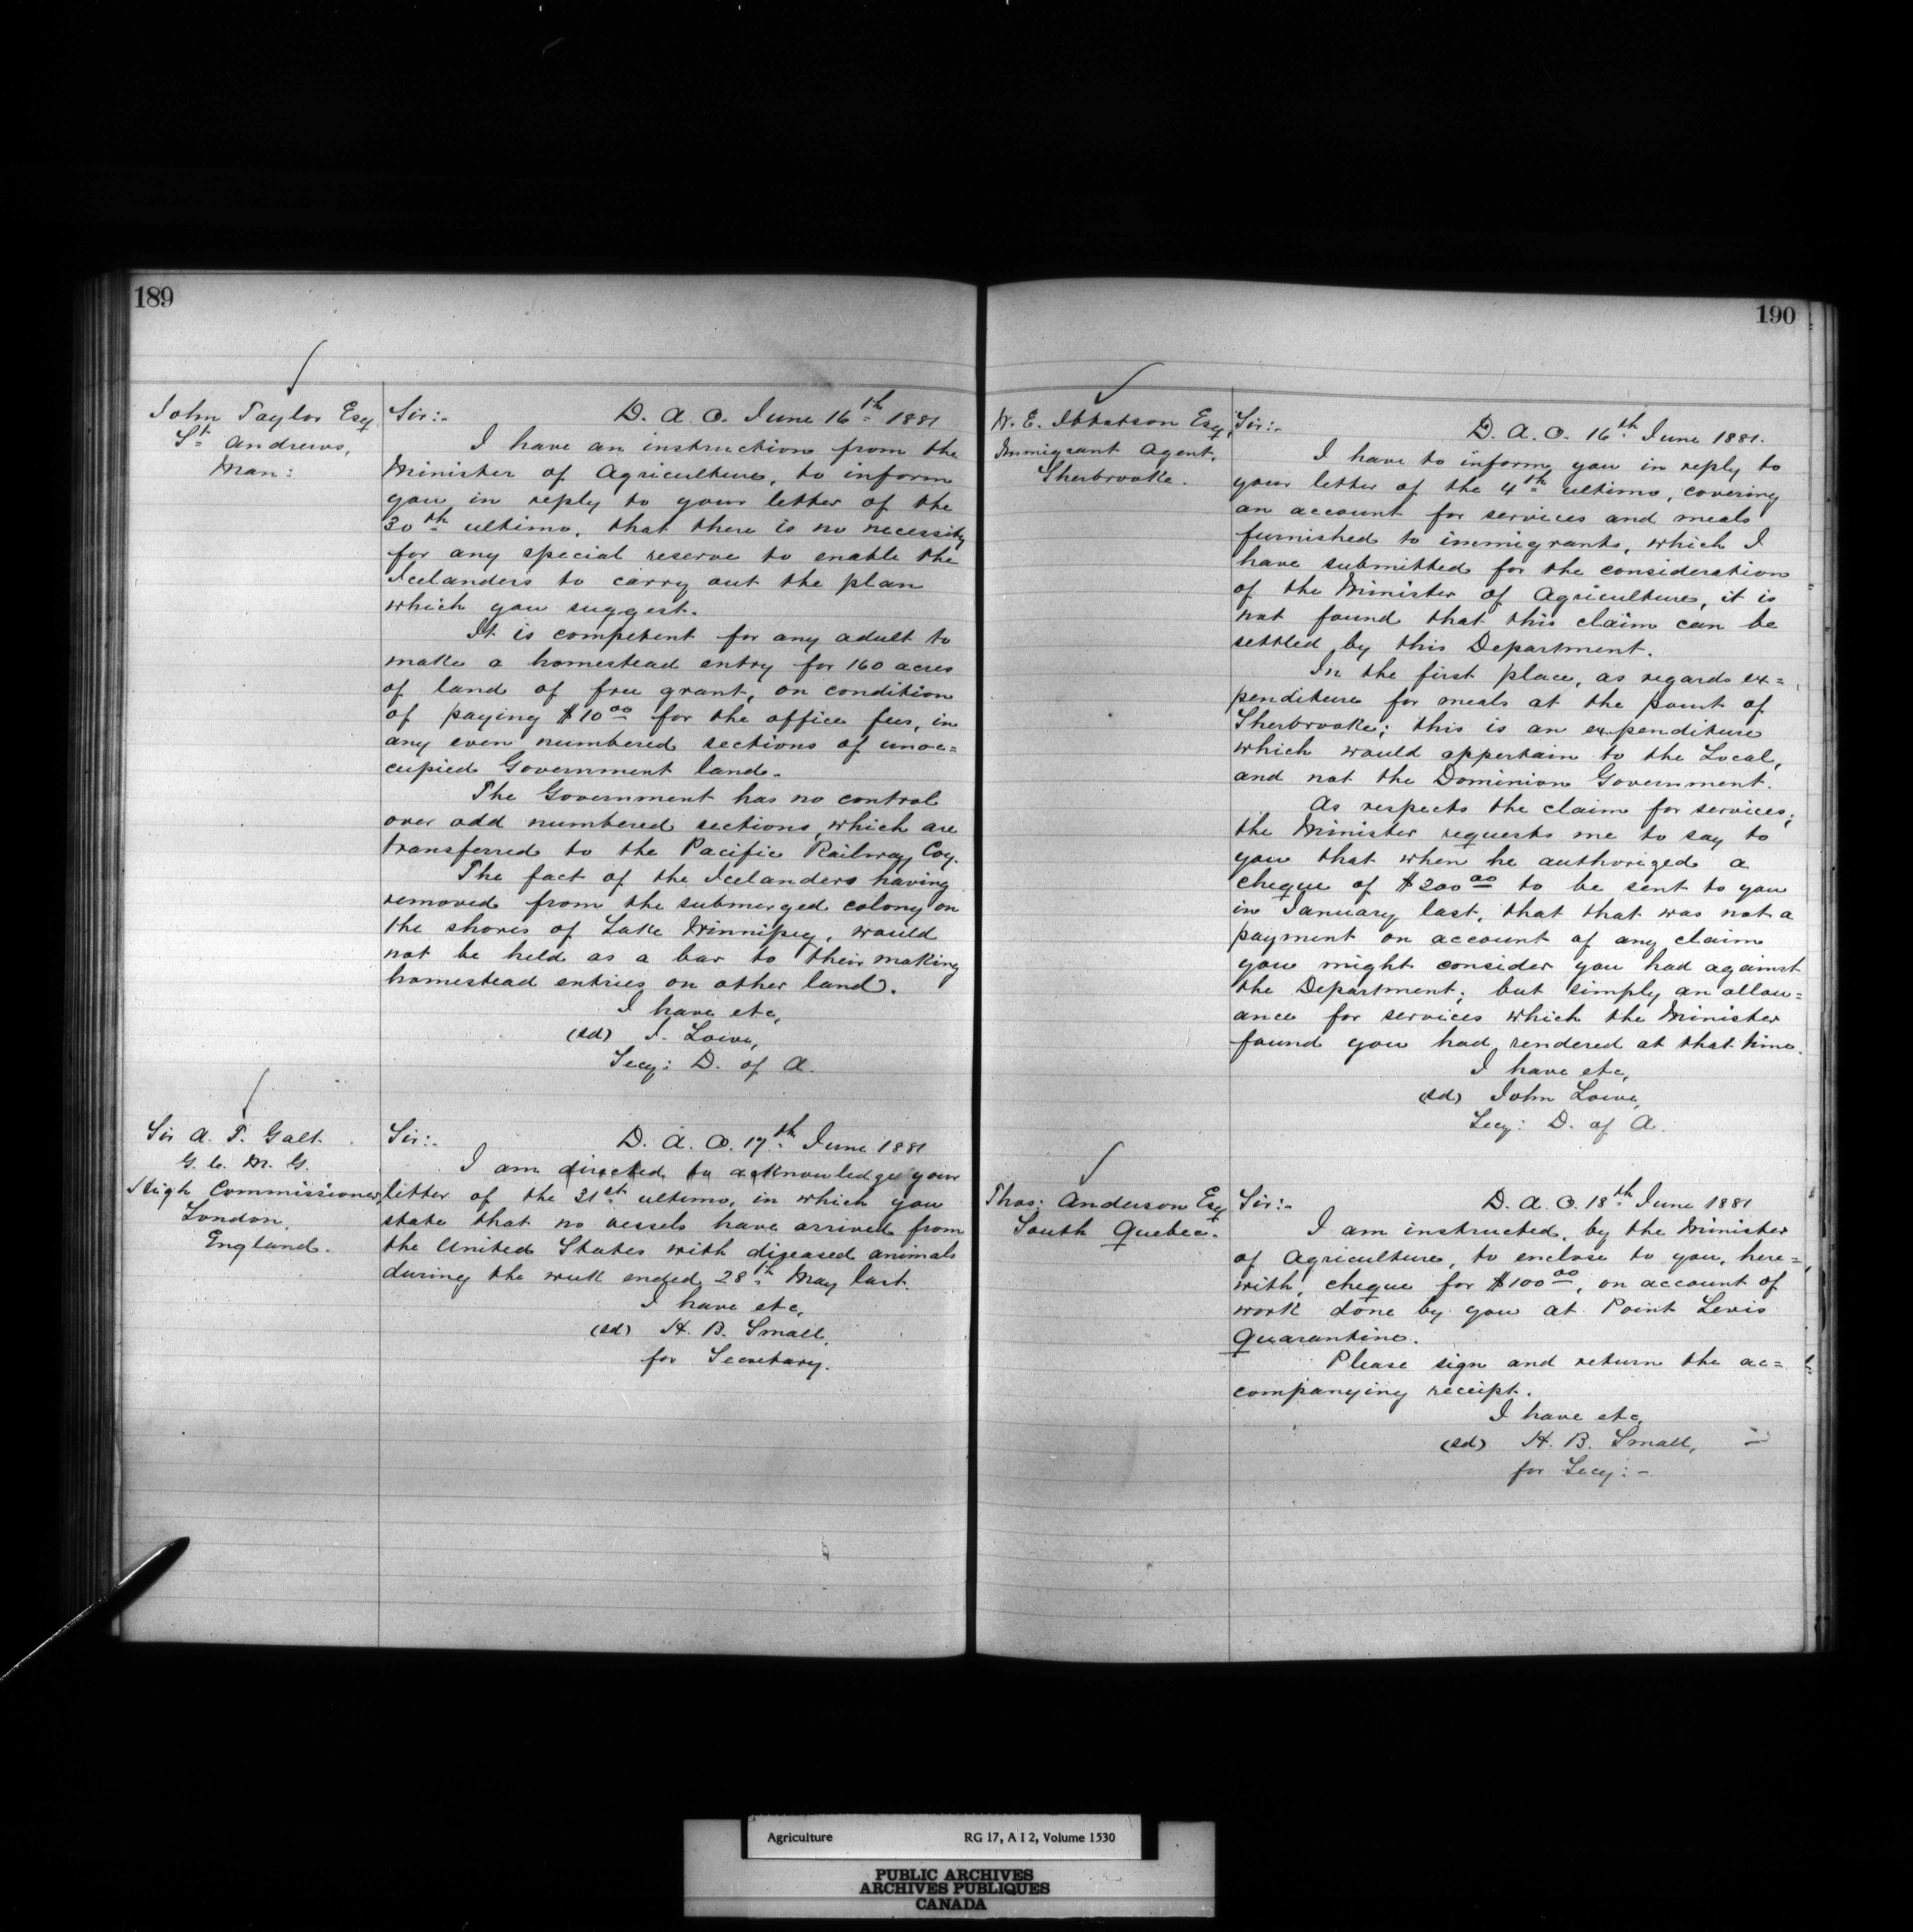 189
John Taylor Esq
St Andrews,
Man:
Sir:- D. A. O. June 16th 1881
I have an instruction from the
Minister of Agriculture, to inform
you in reply to your letter of the
30th ultimo, that there is no necessity
for any special reserve to enable the
Icelanders to carry out the plan
which you suggest.
It is competent for any adult to
make a homestead entry for 160 acres
of land of free grant, on condition
of paying $10 00 for the office fees, in
any even numbered sections of unoc=
cupied Government land.
The Government has no control
over odd numbered sections, which are
transferred to the Pacific Railway Coy.
The fact of the Icelanders having
removed from the submerged colony on
the shores of Lake Winnipeg, would
not be held as a bar to their making
homestead entries on other land.
I have etc,
(sd) J. Lowe,
Secy: D. of A.
Sir A. T. Galt
G. C. M. G.
High Commissioner,
London,
England.
Sir:- D. A. O. 17th June 1881
I am directed to acknowledge your
letter of the 31st ultimo, in which you
state that no vessels have arrived from
the United States with diseased animals
during the week ended 28th May last.
I have etc,
(sd) H. B. Small,
for Secretary.
190
W. E. Ibbotson Esq,
Immigrant Agent,
Sherbrooke.
Sir:- D. A. O. 16th June 1881.
I have to inform you in reply to
your letter of the 4th ultimo, covering
an account for services and meals
furnished to immigrants, which I
have submitted for the consideration
of the Minister of Agriculture, it is
not found that this claim can be
settled by this Department.
In the first place, as regards ex=
penditure for meals at the point of
Sherbrooke; this is an expenditure
which would appertain to the Local,
and not the Dominion Government.
As respects the claim for services;
the Minister requests me to say to
you that when he authorized a
cheque of $200 00 to be sent to you
in January last, that that was not a
payment on account of any claim
you might consider you had against
the Department; but simply an allow=
ance for services which the Minister
found you had rendered at that time.
I have etc,
(sd) John Lowe,
Secy: D. of A.
Thos: Anderson Esq
South Quebec.
Sir:- D. A. O. 18th June 1881
I am instructed, by the Minister
of Agriculture, to enclose to you, here=
with, cheque for $100 00, on account of
work done by you at Point Levis
Quarantine.
Please sign and return the ac=
companying receipt.
I have etc,
(sd) H. B. Small,
for Secy:-
Agriculture RG 17, A I 2, Volume 1530
PUBLIC ARCHIVES
ARCHIVES PUBLIQUES
CANADA